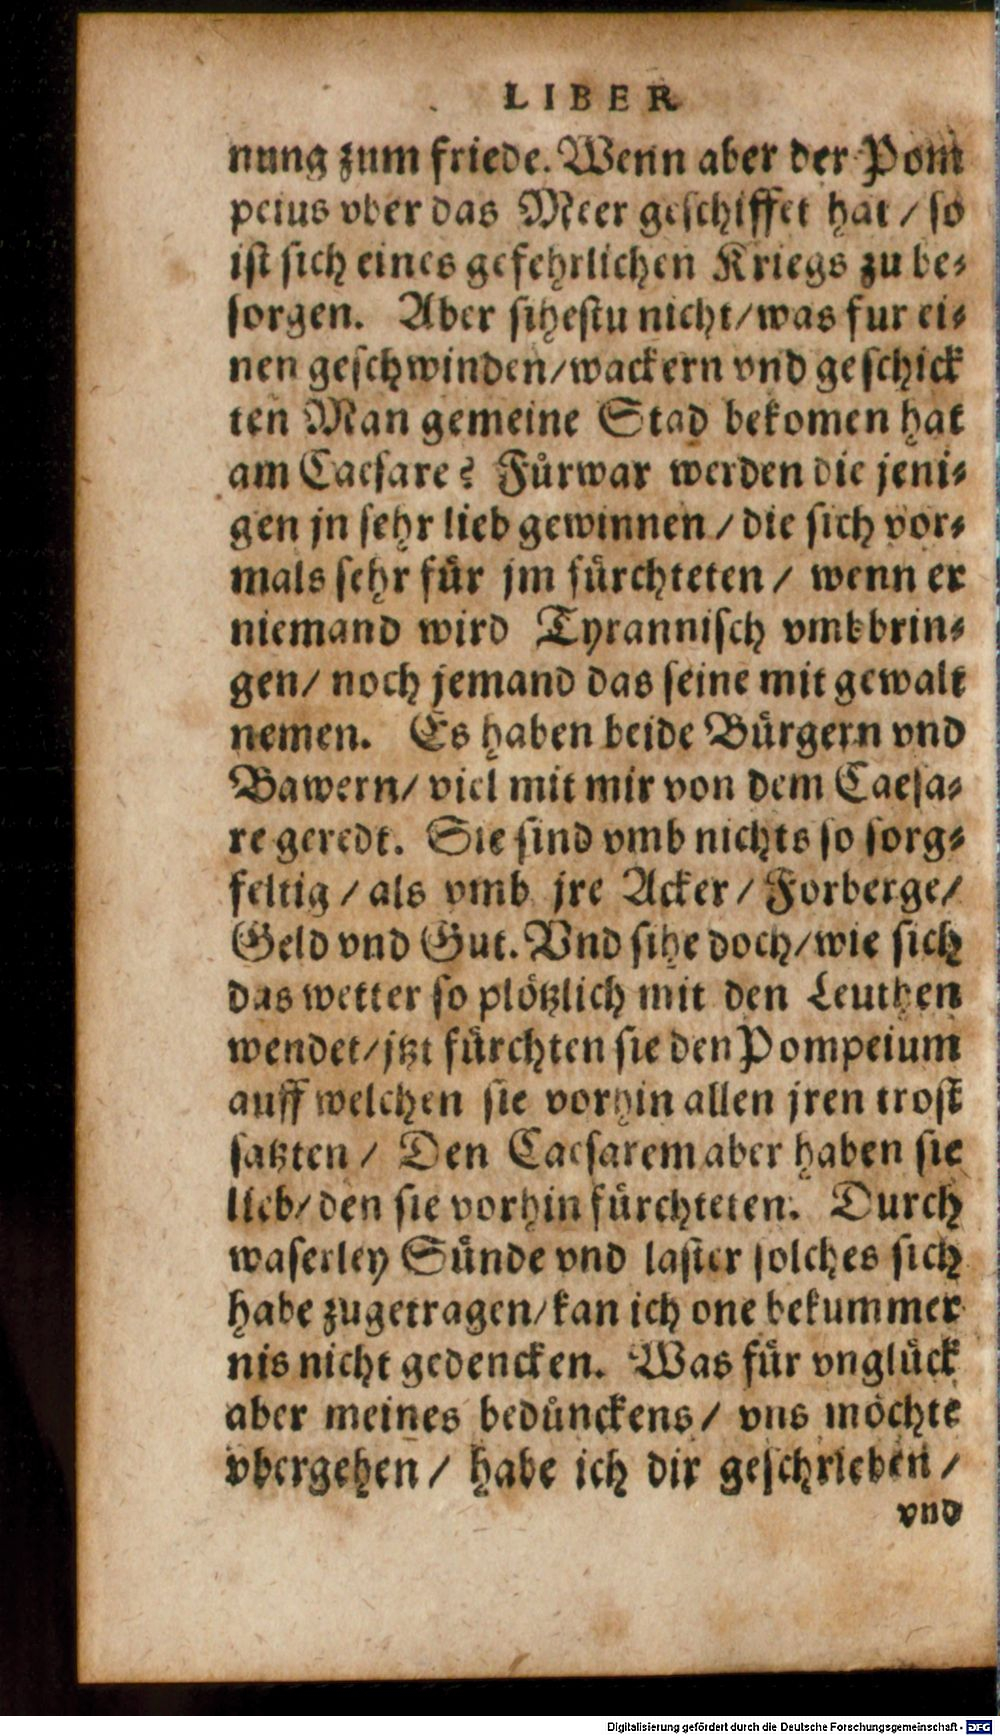 LIBER
nung zum friede. Wenn aber der Pom
peius vber das Meer geschiffet hat / so
ist sich eines gefehrlichen Kriegs zu be⸗
sorgen. Aber sihestu nicht/was fur ei⸗
nen geschwinden/wackern vnd geschick
ten Man gemeine Stad bekomen hat
am Caesare? Fůrwar werden die jeni⸗
gen jn sehr lieb gewinnen / die sich vor⸗
mals sehr fůr jm fůrchteten / wenn er
niemand wird Tyrannisch vmbbrin⸗
gen/ noch jemand das seine mit gewalt
nemen. Es haben beide Bůrgern vnd
Bawern/ viel mit mir von dem Caesa⸗
re geredt. Sie sind vmb nichts so sorg⸗
feltig / als vmb jre Acker / Forberge/
Geld vnd Gut. Vnd sihe doch/wie sich
das wetter so plötzlich mit den Leuthen
wendet/jtzt fůrchten sie den Pompeium
auff welchen sie vorhin allen jren trost
satzten / Den Caesarem aber haben sie
lieb/ den sie vorhin fůrchteten. Durch
waserley Sůnde vnd laster solches sich
habe zugetragen/kan ich one bekummer
nis nicht gedencken. Was fůr vnglůck
aber meines bedůnckens / vns möchte
vbergehen / habe ich dir geschrieben /
vnd
Digitalisierung gefördert durch die Deutsche Forschungsgemeinschaft - DFG